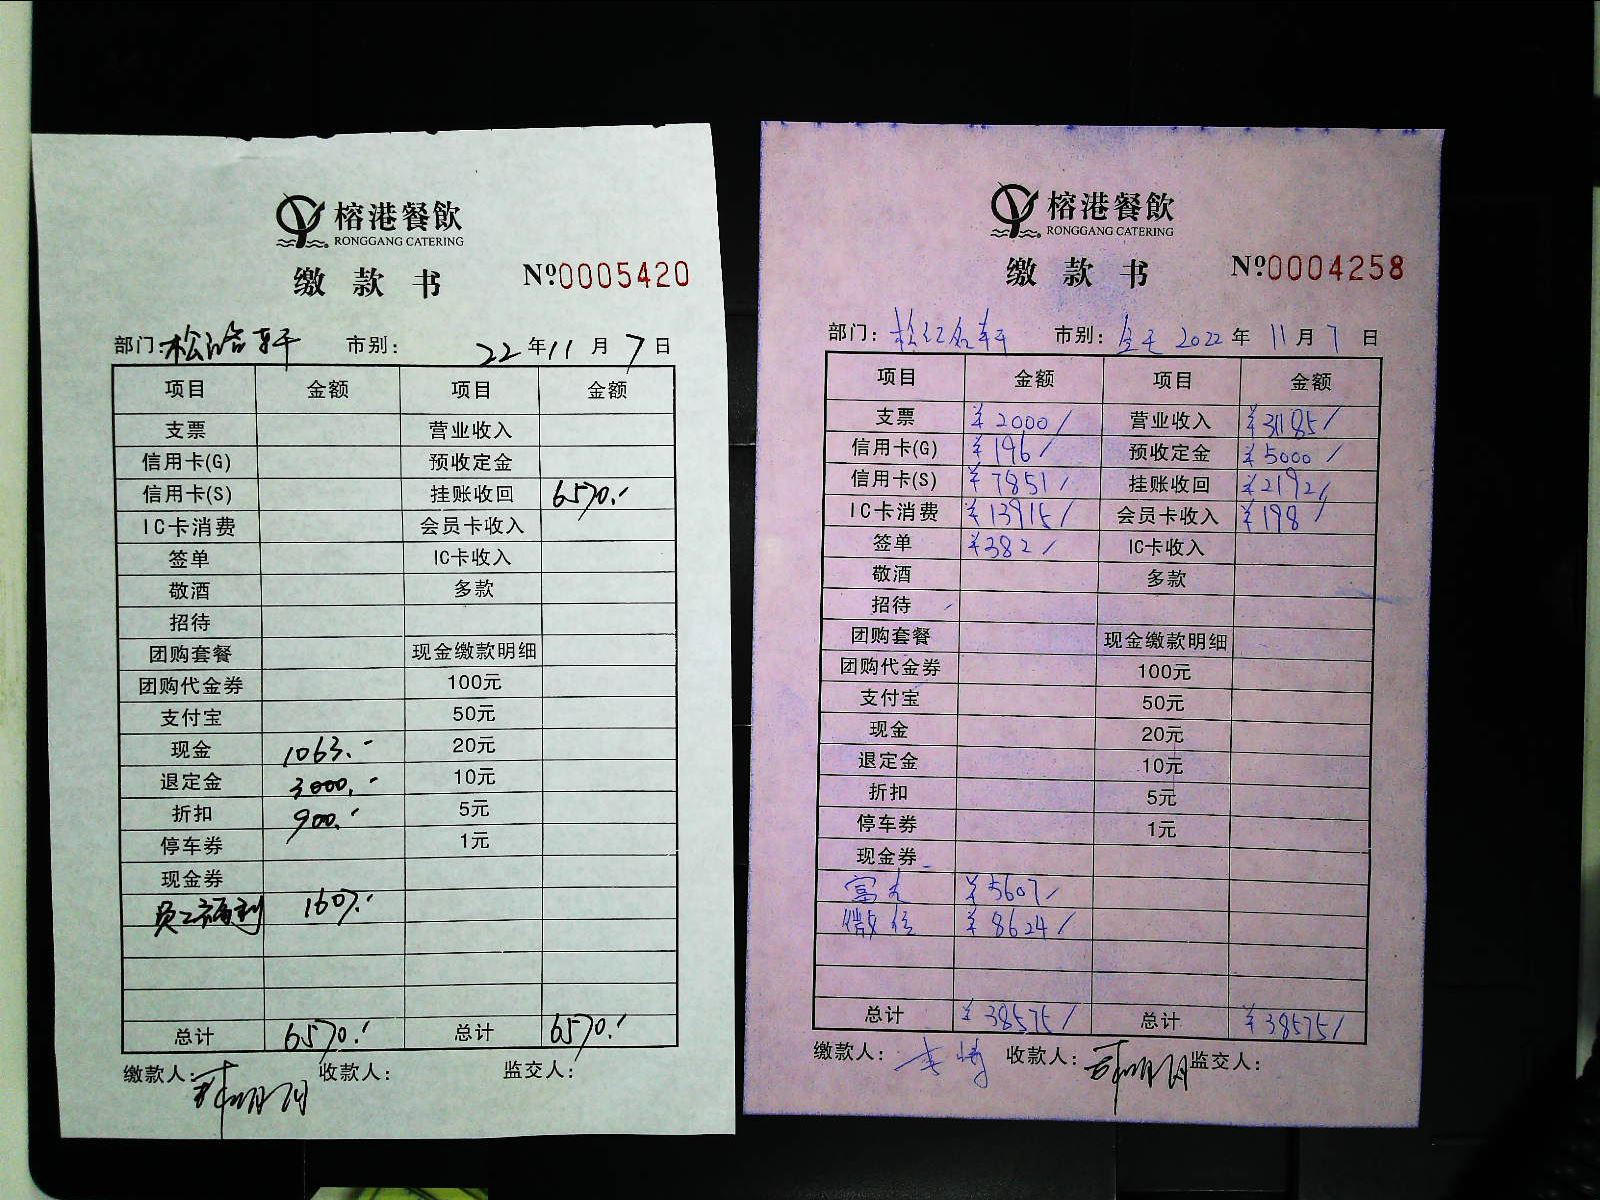 榕港餐飲
RONGGANG CATERING
缴款书 №0005420
部门: 市别: 22年11月7日
项目 金额 项目 金额
支票 营业收入
信用卡(G) 预收定金
信用卡(S) 挂账收回 6570.-
IC卡消费 会员卡收入
签单 IC卡收入
敬酒 多款
招待
团购套餐 现金缴款明细
团购代金券 100元
支付宝 50元
现金 1063.- 20元
退定金 3000.- 10元
折扣 900.- 5元
停车券 1元
现金券
员工福利 1607.-
总计 6570.- 总计 6570.-
缴款人: 收款人: 监交人:
榕港餐飲
RONGGANG CATERING
缴款书 №0004258
部门: 市别: 2022年11月7日
项目 金额 项目 金额
支票 ¥2000/ 营业收入 ¥31185/
信用卡(G) ¥196/ 预收定金 ¥5000/
信用卡(S) ¥7851/ 挂账收回 ¥2192/
IC卡消费 ¥13915/ 会员卡收入 ¥198/
签单 ¥382/ IC卡收入
敬酒 多款
招待
团购套餐 现金缴款明细
团购代金券 100元
支付宝 50元
现金 20元
退定金 10元
折扣 5元
停车券 1元
现金券
¥5607/
微信 ¥8624/
总计 ¥38575/ 总计 ¥38575/
缴款人: 收款人: 监交人: